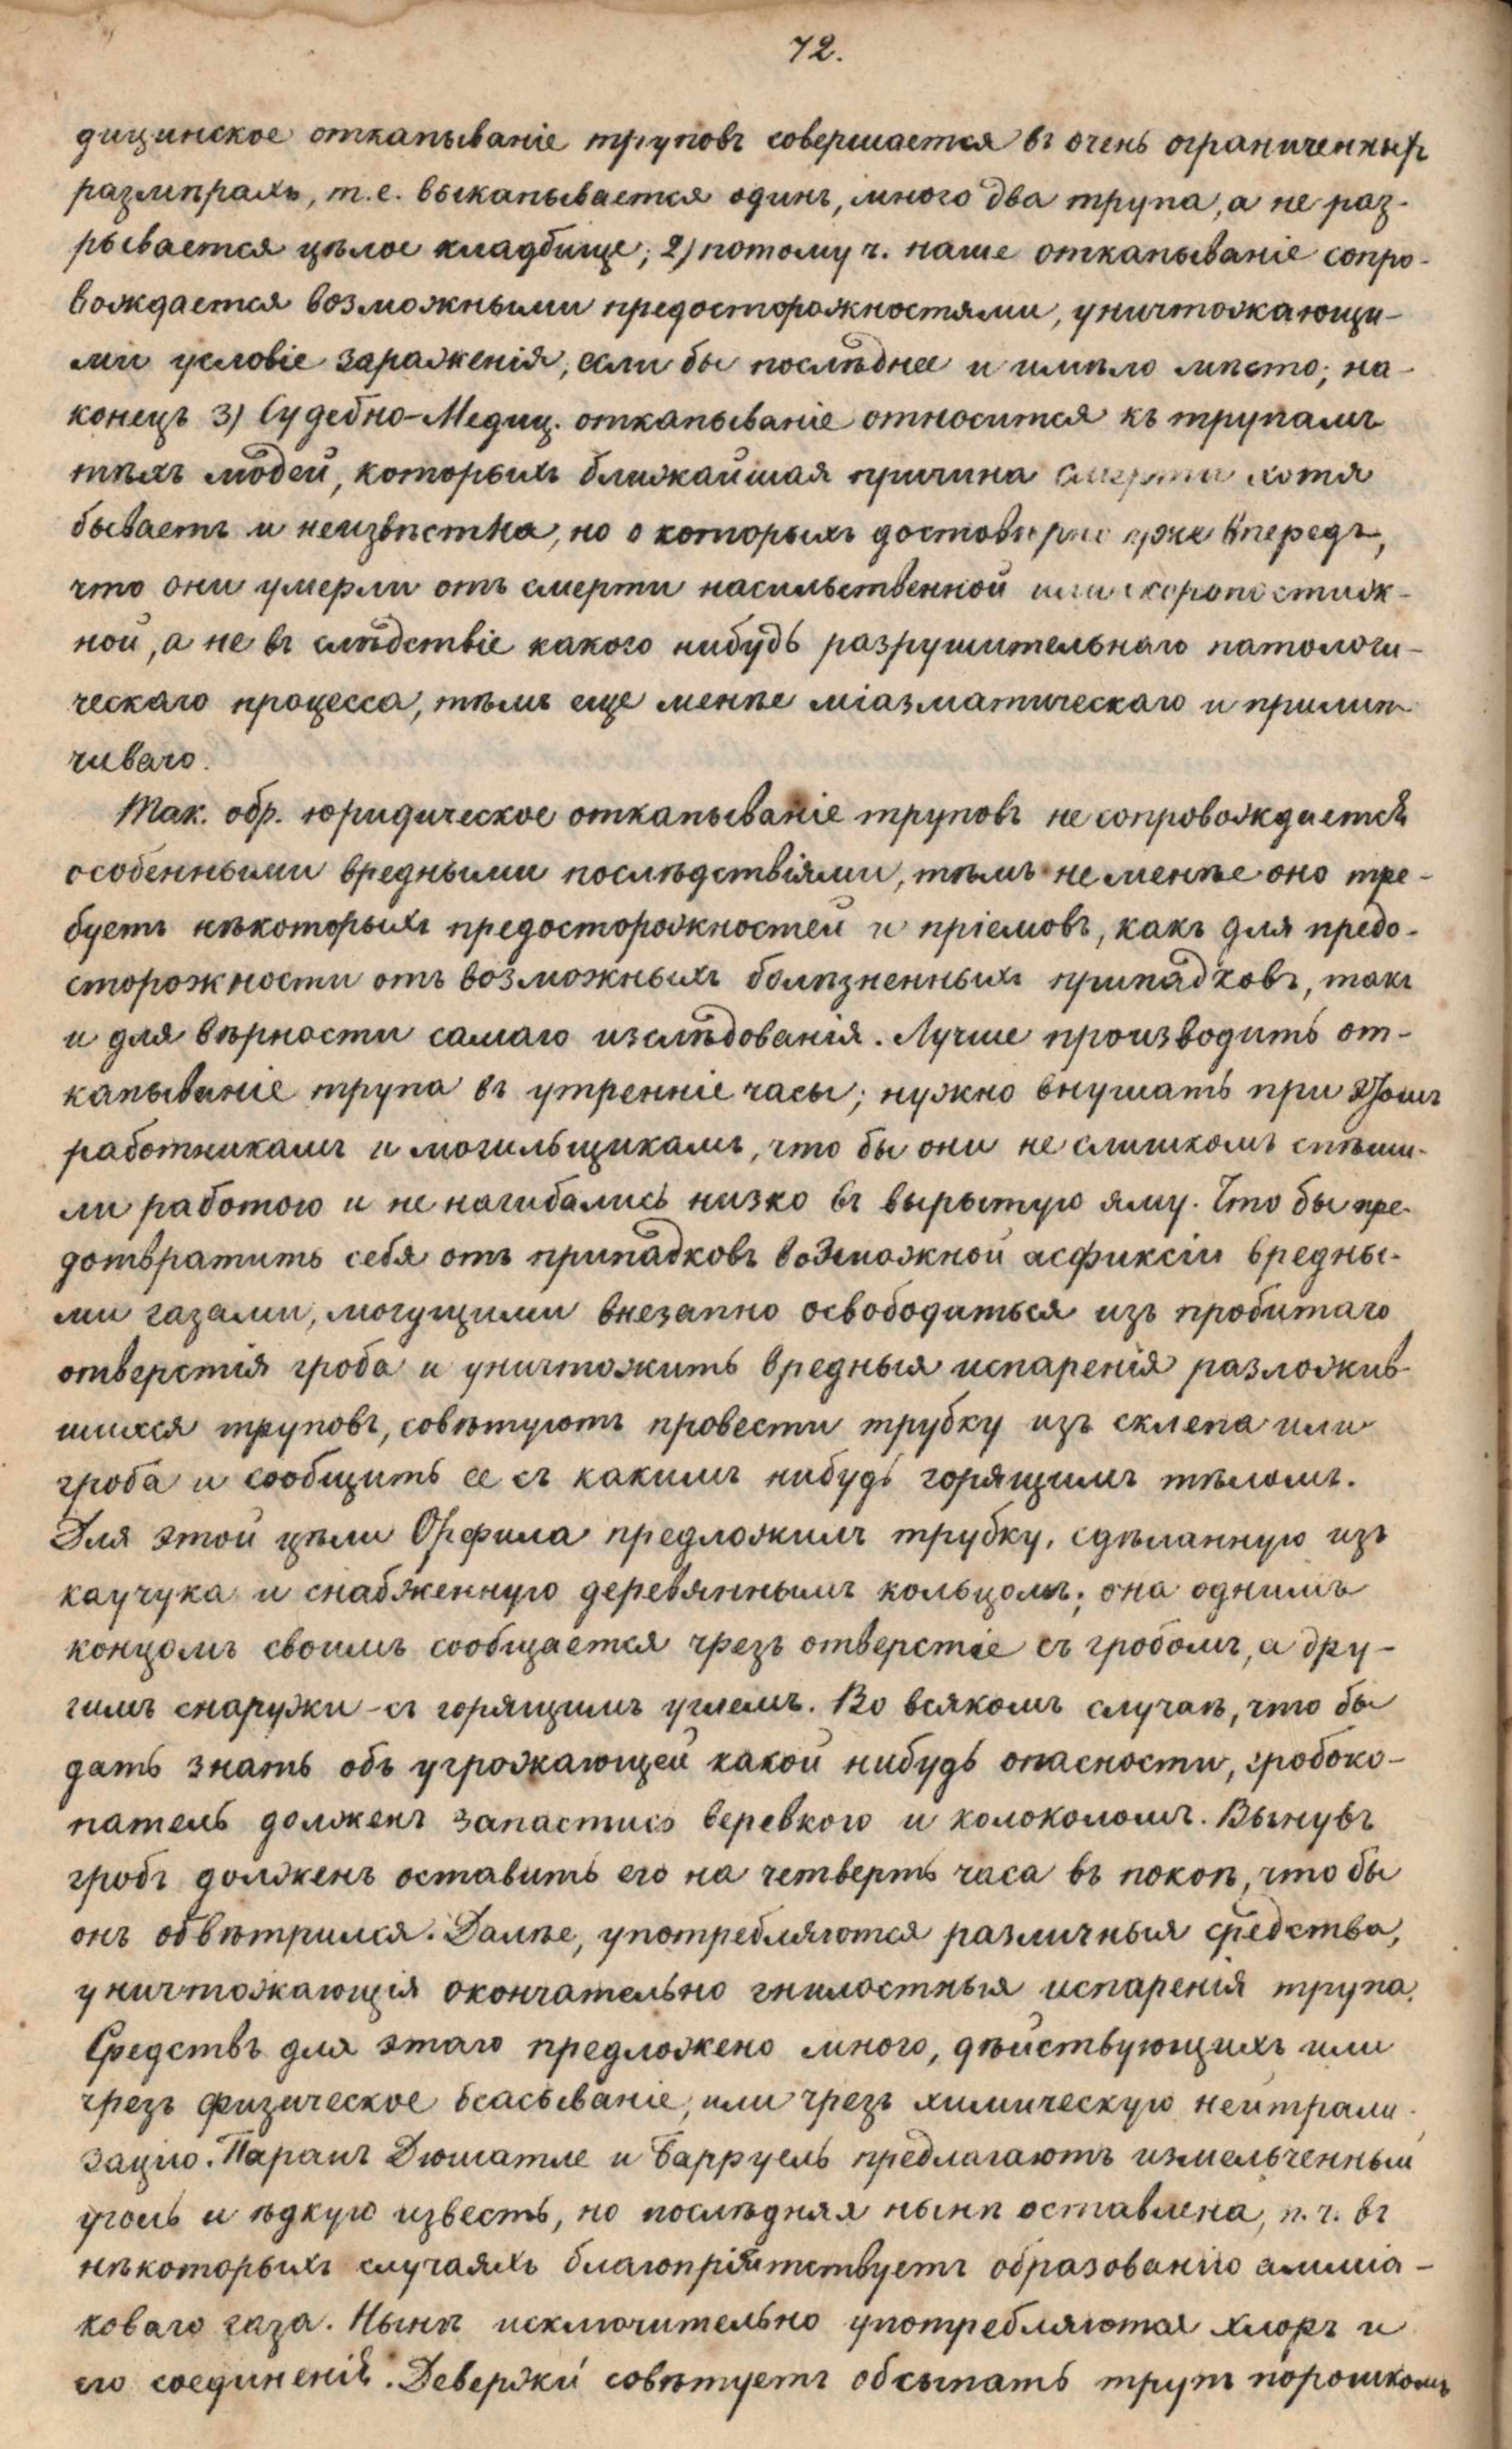 72.
дицинское откапываніе труповъ совершается въ очень ограниченныхъ
размѣрахъ, т.е. выкапывается одинъ, много два трупа, а не раз-
рывается цѣлое кладбище; 2) потому ч. наше откапываніе сопро-
вождается возможными предосторожностями, уничтожающи-
ми условіе зараженія, если бы послѣднее и имѣло мѣсто; на-
конецъ 3) Судебно-Медиц. откапываніе относится къ трупамъ
тѣхъ людей, которыхъ ближайшая причина смерти хотя
бываетъ и неизвѣстна, но о которыхъ достовѣрно уже впередъ,
что они умерли отъ смерти насильственной или скоропостиж-
ной, а не въ слѣдствіе какого нибудь разрушительнаго патологи-
ческаго процесса, тѣмъ еще менѣе міазматическаго и прилип-
чиваго.
Так. обр. юридическое откапываніе труповъ не сопровождается
особенными вредными послѣдствіями, тѣмъ не менѣе оно тре-
буетъ нѣкоторыхъ предосторожностей и пріемовъ, какъ для предо-
сторожности отъ возможныхъ болѣзненныхъ припадковъ, такъ
и для вѣрности самаго изслѣдованія. Лучше производить от-
капываніе трупа въ утренніе часы; нужно внушать при этомъ
работникамъ и могильщикамъ, что бы они не слишкомъ спѣши-
ли работою и не нагибались низко въ вырытую яму. Что бы пре-
дотвратить себя отъ припадковъ возможной асфиксіи вредны-
ми газами, могущими внезапно освободиться изъ пробитаго
отверстія гроба и уничтожить вредныя испаренія разложив-
шихся труповъ, совѣтуютъ провести трубку изъ склепа или
гроба и сообщить ее съ какимъ нибудь горящимъ тѣломъ.
Для этой цѣли Орфила предложилъ трубку, сдѣланную изъ
каучука и снабженную деревяннымъ кольцомъ; она однимъ
концомъ своимъ сообщается чрезъ отверстіе съ гробомъ, а дру-
гимъ снаружи - съ горящимъ углемъ. Во всякомъ случаѣ, что бы
дать знать объ угрожающей какой нибудь опасности, гробоко-
патель долженъ запастись веревкою и колоколомъ. Вынувъ
гробъ долженъ оставить его на четверть часа въ покоѣ, что бы
онъ обвѣтрился. Далѣе, употребляются различныя средства,
уничтожающія окончательно гнилостныя испаренія трупа.
Средствъ для этаго предложено много, дѣйствующихъ или
чрезъ физическое всасываніе, или чрезъ химическую нейтрали-
зацію. Паранъ Дюшатле и Барруель предлагаютъ измельченный
уголь и ѣдкую известь, но послѣдняя нынѣ оставлена, п. ч. въ
нѣкоторыхъ случаяхъ благопріятствуетъ образованію амміа-
коваго газа. Нынѣ исключительно употребляются хлоръ и
его соединенія. Девержи совѣтуетъ обсыпать трупъ порошкомъ